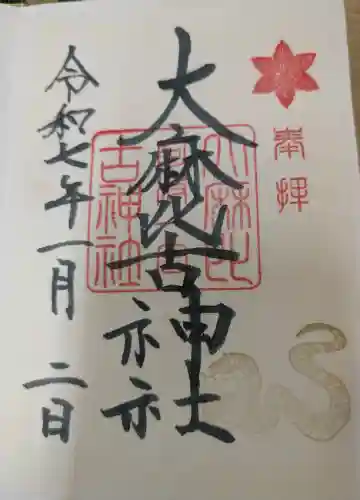 奉拝
大麻比古神社
大麻比古神社
令和七年一月二日